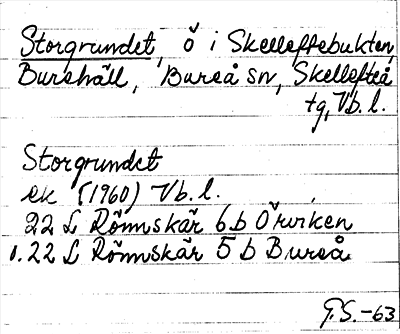 Storgrundet, ö i Skelleftebukten,
Burehäll, Bureå sn, Skellefteå
tg, Vb. l.
Storgrundet
ek (1960) Vb. l.
22 L Rönnskär 6 b Örviken
o. 22 L Rönnskär 5 b Bureå
G.S.-63